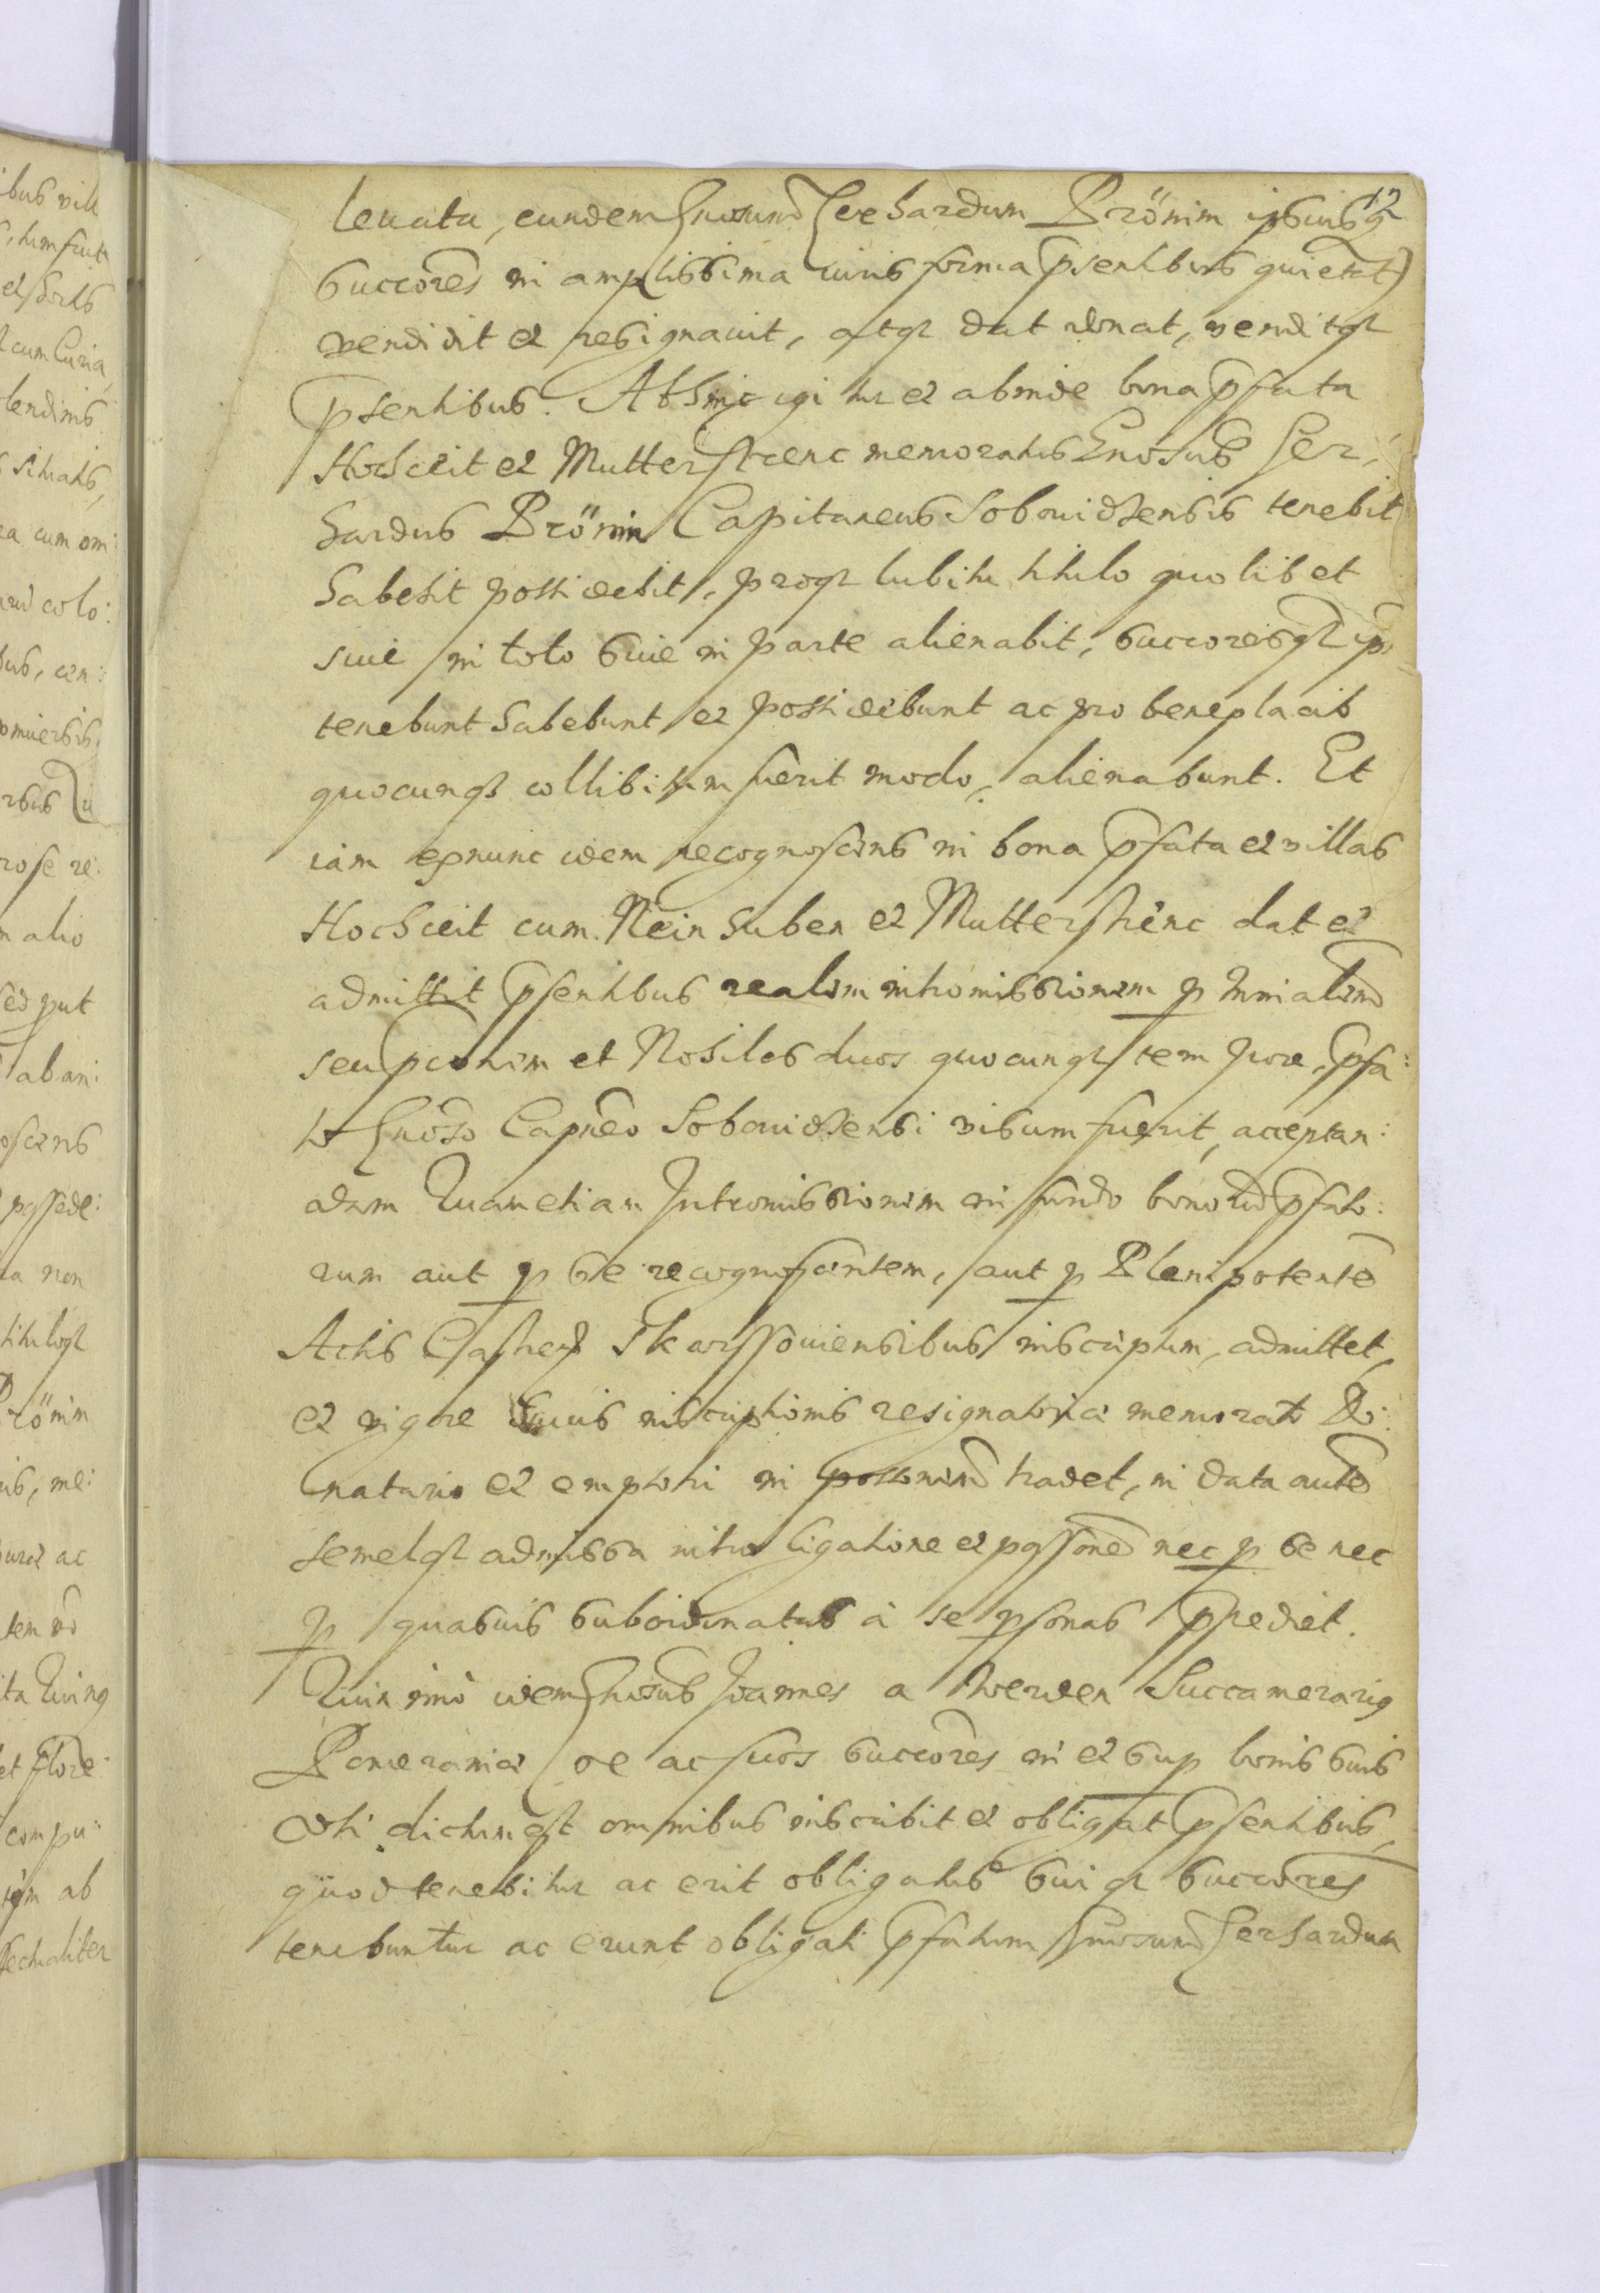 12
levata, eundem Gnosum Gerhardum Prönin ipsius
succores in amplissima iuris forma psentibus quietat)
vendidit et resignavit, atq dat donat, venditq
psentibus. Abhinc igitur et abinde bona pfata
Hochceit et Mutterstrenc memoratus Gnosus Ger:
hardus Prönin Capitaneus Sobowidzensis tenebit
habebit possidebit, proq lubitu titulo quolibet
sive in toto sive in parte alienabit, succoresq ip
tenebunt habebunt et possidebunt ac pro beneplacito
quocunq collibitum fuerit modo, alienabunt. Et
iam exnunc idem recognoscens in bona pfata et villas
Hochceit cum Neinhuben et Mutterstrenc dat et
admittit psentibus realem intromissionem p Mnialem
seu et Nobiles duos quocunq tempore, pfa:
to Gnoso Capneo Sobowidzensi visum fuerit, acceptan:
dam Quam etiam Intromissionem in fundo bonorum pfato:
rum aut p se recognoscentem, aut p Plenipotentem
Actis Skarssoviensibus inscriptum, admittet,
et vigore suis inscriptionis resignatoriæ memorato Do:
natario et emptori in possnem tradet, in data autem
semelq admissa intro ligatione et possone nec p se nec
p quasvis subordinatas à se psonas ppediet.
Quin imò idem Gnosus Joannes a Werden Succamerariq
Pomeraniæ se ac suos succores in et sup bonis suis
Uti dictum est omnibus inscribit et obligat psentibus,
quod tenebitur ac erit obligatus suiq succores
tenebuntur ac erunt obligati pfatum Gnosum Gerhardum